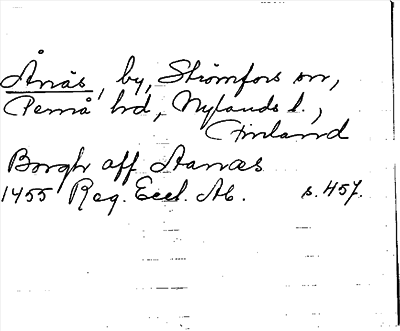 Ånäs, by, Strömfors sn,
Pernå hd, Nylands l.,
Finland
Borgh aff Aanæs
1455 Reg. Eccl. Ab. s. 457.